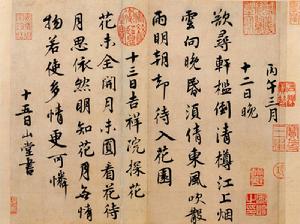 丙午三月
十二日晚
欲尋軒檻倒清樽江上烟
雲向晚昏須倩東風吹散
雨明朝却待入花園
十三日吉祥院探花
花未全開月未圓看花待
月思依然明知花月無情
物若使多情更可憐
十五日山堂書